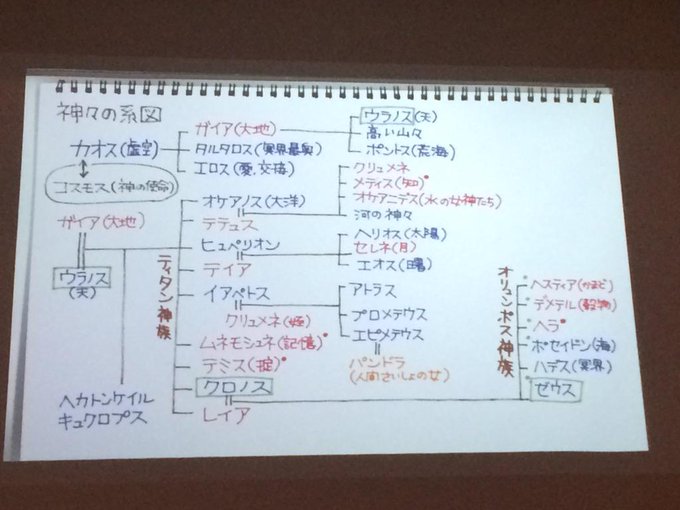 神々の系図
カオス(虚空)
コスモス(神の使命)
ガイア(大地)
タルタロス(冥界最奥)
エロス(愛.交接)
ウラノス(天)
高い山々
ポントス(荒海)
ガイア(大地)
ウラノス
(天)
ヘカトンケイル
キュクロプス
ティタン神族
オケアノス(大洋)
テテュス
ヒュペリオン
テイア
イアペトス
クリュメネ(姪)
ムネモシュネ(記憶)
テミス(掟)
クロノス
レイア
クリュメネ
メティス(知)
オケアニデス(水の女神たち)
河の神々
ヘリオス(太陽)
セレネ(月)
エオス(曙)
アトラス
プロメテウス
エピメテウス
パンドラ
(人間さいしょの女)
オリュンポス神族
ヘスティア(かまど)
デメテル(穀物)
ヘラ
ポセイドン(海)
ハデス(冥界)
ゼウス